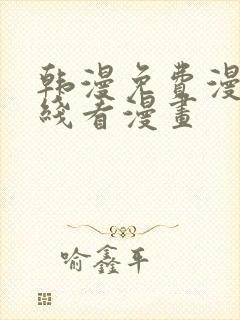 韩漫免费漫
线看漫畫
喻鑫平